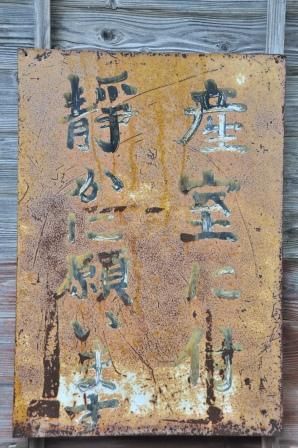 産室に付
静かに願います